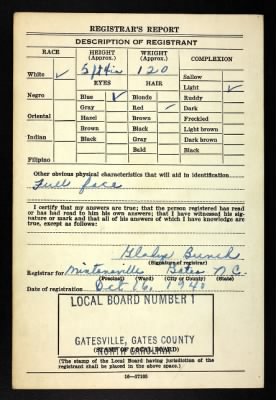 REGISTRAR'S REPORT
DESCRIPTION OF REGISTRANT
RACE HEIGHT (Approx.) WEIGHT (Approx.) COMPLEXION
5 ft 4 in 120
White ✓ EYES HAIR Sallow
Light ✓
Negro Blue ✓ Blonde Ruddy
Gray Red ✓ Dark
Oriental Hazel Brown Freckled
Brown Black Light brown
Indian Black Gray Dark brown
Bald Black
Filipino
Other obvious physical characteristics that will aid in identification
Full face
I certify that my answers are true; that the person registered has read
or has had read to him his own answers; that I have witnessed his
signature or mark and that all of his answers of which I have knowledge are
true, except as follows:
Gladys Bunch
(Signature of registrar)
Registrar for Mintonsville Gates N.C.
(Precinct) (Ward) (City or County) (State)
Date of registration Oct 16, 1940
LOCAL BOARD NUMBER 1
GATESVILLE, GATES COUNTY
(STAMP OF LOCAL BOARD)
NORTH CAROLINA
(The stamp of the Local Board having jurisdiction of the
registrant shall be placed in the above space.)
16—17105